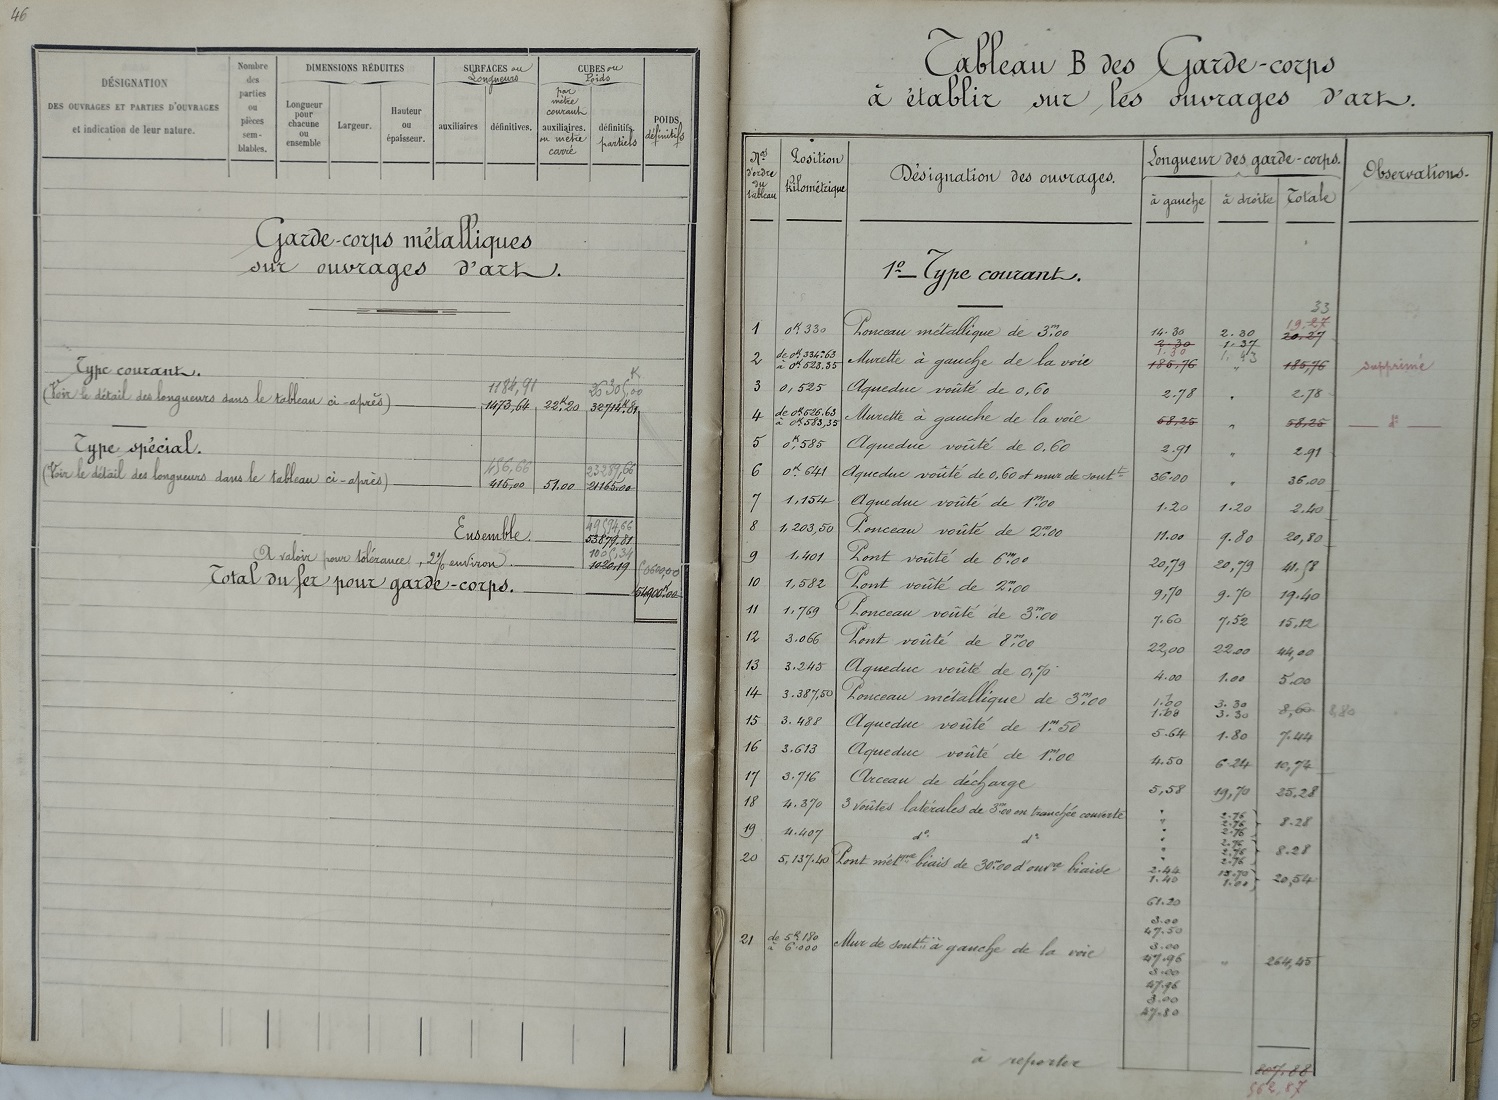 46
DÉSIGNATION
DES OUVRAGES ET PARTIES D'OUVRAGES
et indication de leur nature.
Nombre des parties ou pièces sem-blables.
DIMENSIONS RÉDUITES
Longueur pour chacune ou ensemble
Largeur.
Hauteur ou épaisseur.
SURFACES ou Longueurs
auxiliaires
définitives.
CUBES ou Poids
par mètre courant auxiliaires. ou mètre carré
définitifs partiels
POIDS définitifs
Garde-corps métalliques
sur ouvrages d'art.
Type courant.
1184,91 26305,00
(Voir le détail des longueurs dans le tableau ci-après) 1473,64 22K20 32714K81
Type spécial.
456,66 23289,66
(Voir le détail des longueurs dans le tableau ci-après) 415,00 51.00 21165.00
49594,66
Ensemble 53879.81
1005,34
A valoir pour tolérance, 2% environ 1020.19
50600,00
Total du fer pour garde-corps. 54900K00
Tableau B des Garde-corps
à établir sur les ouvrages d'art.
Nos d'ordre du tableau
Position kilométrique
Désignation des ouvrages.
Longueur des garde-corps.
à gauche
à droite
Totale
Observations.
1o Type courant.
33
19,27
1 0K330 Ponceau métallique de 3m00 14.30 2.30 20,27
2.30 1.37
1.30 1.43
2 de 0K334.63 à 0K523.35 Murette à gauche de la voie 185,76 " 185,76 supprimé
3 0,525 Aqueduc voûté de 0,60 2.78 " 2.78
4 de 0K526.63 à 0K583,35 Murette à gauche de la voie 58,25 " 58,25 — do —
5 0K585 Aqueduc voûté de 0.60 2.91 " 2.91
6 0K641 Aqueduc voûté de 0,60 et mur de soutt 36.00 " 36.00
7 1.154 Aqueduc voûté de 1m00 1.20 1.20 2.40
8 1,203,50 Ponceau voûté de 2m00 11.00 9.80 20,80
9 1.401 Pont voûté de 6m00 20,79 20,79 41.58
10 1,582 Pont voûté de 2m00 9,70 9.70 19.40
11 1.769 Ponceau voûté de 3m00 7.60 7.52 15,12
12 3.066 Pont voûté de 8m00 22,00 22.00 44,00
13 3.245 Aqueduc voûté de 0,70 4.00 1.00 5.00
14 3.387,50 Ponceau métallique de 3m00 1.00 3.30 8,60 8,80
1.00 3.30
15 3.488 Aqueduc voûté de 1m50 5.64 1.80 7.44
16 3.613 Aqueduc voûté de 1m00 4.50 6.24 10,74
17 3.716 Arceau de décharge 5,58 19,70 25.28
18 4.370 3 voûtes latérales de 3m00 en tranchée couverte " 2.76 8.28
" 2.76
" 2.76
19 4.407 do do " 2.76 8.28
" 2.76
" 2.76
20 5,137.40 Pont métque biais de 30m00 d'ouvre biaise 2.44 15.70 20,54
1.40 1.00
61.20
3.00
47.50
21 de 5K180 à 6.000 Mur de soutt à gauche de la voie 3.00
47.96 " 264,45
3.00
47.96
3.00
47.80
à reporter 807.88
562,87